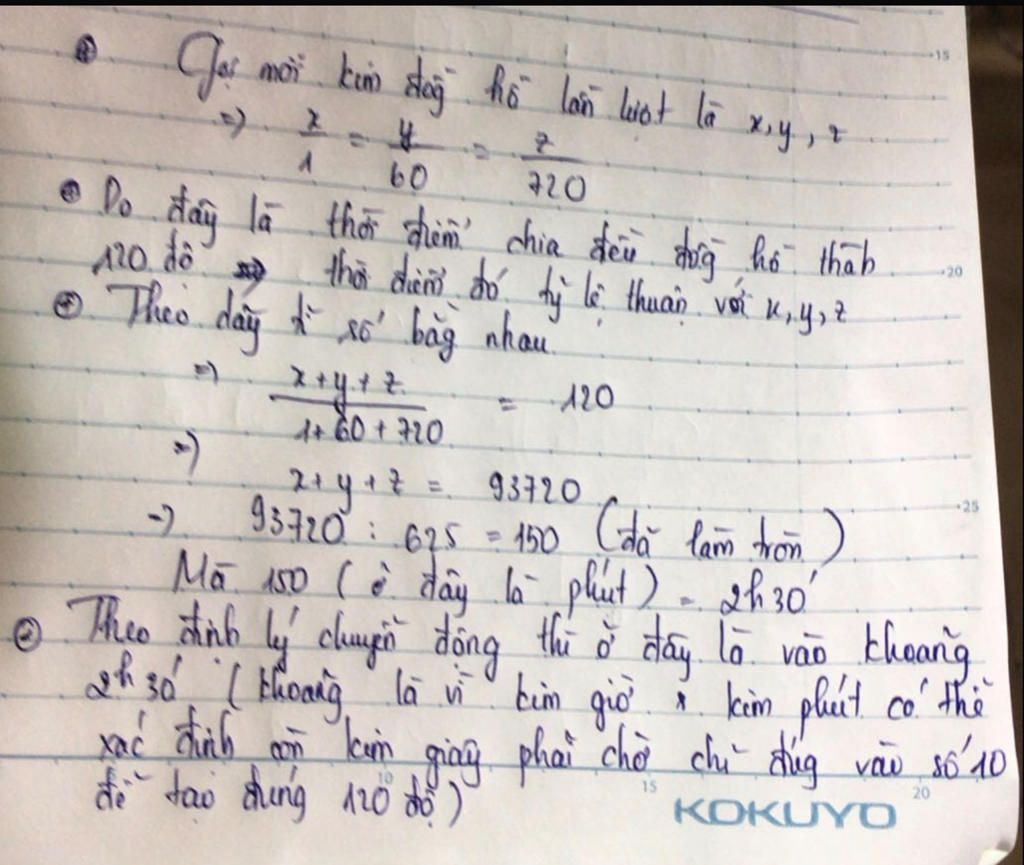 Gọi mỗi kim đồg hồ lần lượt là x, y, z
=> x/1 = y/60 = z/720
Do đây là thời điểm chia đều đồg hồ thành
120 độ => thời điểm đó tỷ lệ thuận với x, y, z
Theo dãy tỉ số bằg nhau
=> x + y + z / 1 + 60 + 720 = 120
=>
x + y + z = 93720
=> 93720 : 625 = 150 (đã làm tròn)
Mà 150 (ở đây là phút) = 2h30'
Theo định lý chuyển động thì ở đây là vào khoảng
2h30' (khoảng là vì kim giờ x kim phút có thể
xác định còn kim giây phải chờ chỉ đúg vào số 10
để tạo đúng 120 độ)
15
20
25
10
15
20
KOKUYO